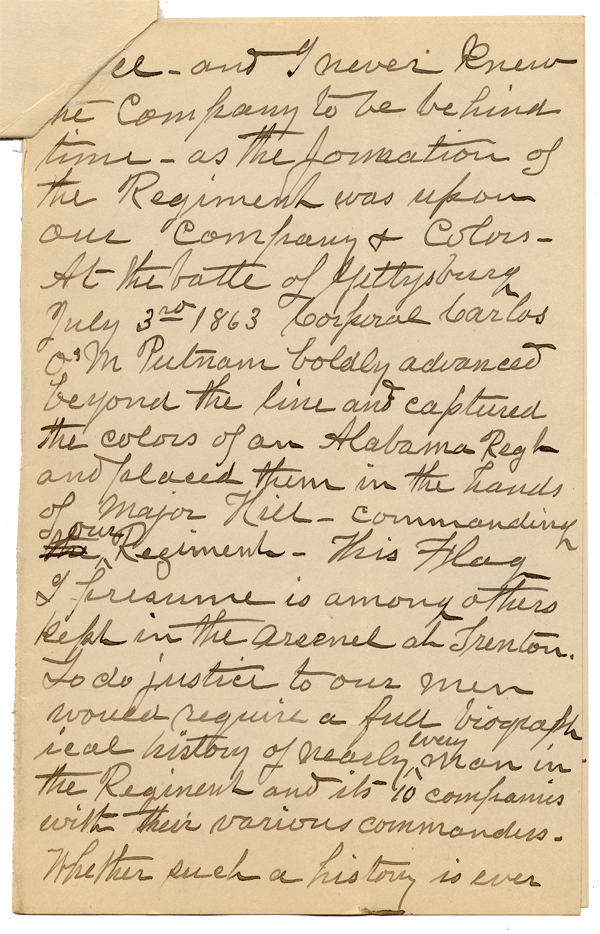 ell - and I never knew
the Company to be behind
time - as the formation of
the Regiment was upon
our Company & Colors -
At the battle of Gettysburg
July 3rd 1863 Corporal Carlos
M Putnam boldly advanced
beyond the line and captured
the colors of an Alabama Regt
and placed them in the hands
of Major Hill - commanding
the our Regiment - This Flag
I presume is among others
kept in the arsenel at Trenton.
To do justice to our men
would require a full biograph
ical history of nearly every man in
the Regiment and its 10 companies
with their various commanders.
Whether such a history is ever